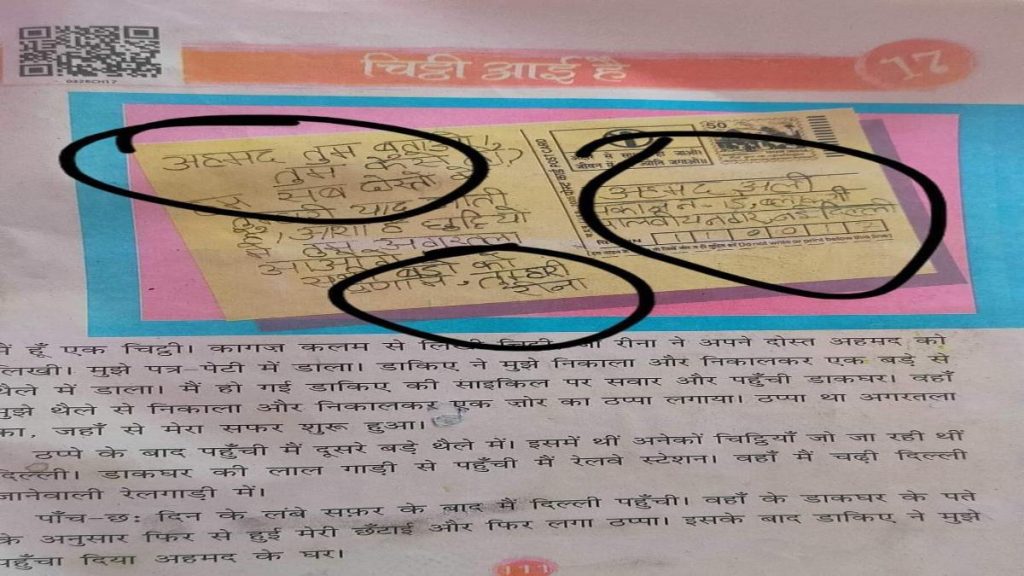 0325CH17
चिट्ठी आई है
17
अहमद तुम बताओ।
तुम कैसे हो?
सब दोस्तों
की याद आती
तुम अगरतला
तुम्हारी
रीना
BHARATIYA DAK POST CARD
50
अहमद अली
नई दिल्ली
PIN
(Do not write or print below this line)
मैं हूँ एक चिट्ठी। कागज़ कलम से लिखी चिट्ठी रीना ने अपने दोस्त अहमद को
लिखी। मुझे पत्र-पेटी में डाला। डाकिए ने मुझे निकाला और निकालकर एक बड़े से
थैले में डाला। मैं हो गई डाकिए की साइकिल पर सवार और पहुँची डाकघर। वहाँ
मुझे थैले से निकाला और निकालकर एक ज़ोर का ठप्पा लगाया। ठप्पा था अगरतला
का, जहाँ से मेरा सफर शुरू हुआ।
ठप्पे के बाद पहुँची मैं दूसरे बड़े थैले में। इसमें थीं अनेकों चिट्ठियाँ जो जा रही थीं
दिल्ली। डाकघर की लाल गाड़ी से पहुँची मैं रेलवे स्टेशन। वहाँ मैं चढ़ी दिल्ली
जानेवाली रेलगाड़ी में।
पाँच-छः दिन के लंबे सफ़र के बाद मैं दिल्ली पहुँची। वहाँ के डाकघर के पते
के अनुसार फिर से हुई मेरी छँटाई और फिर लगा ठप्पा। इसके बाद डाकिए ने मुझे
पहुँचा दिया अहमद के घर।
111